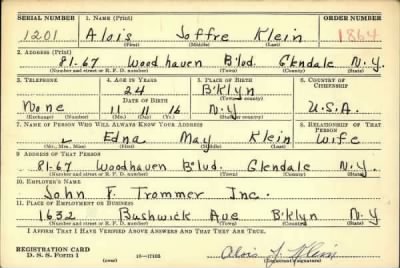 SERIAL NUMBER 1. NAME (Print) ORDER NUMBER
1201 Alois Joffre Klein 1864
(First) (Middle) (Last)
2. ADDRESS (Print)
81-67 Woodhaven B'lvd. Glendale N.Y.
(Number and street or R. F. D. number) (Town) (County) (State)
3. TELEPHONE 4. AGE IN YEARS 5. PLACE OF BIRTH 6. COUNTRY OF CITIZENSHIP
24 B'klyn
DATE OF BIRTH (Town or county)
None 11 11 16 N.Y U.S.A.
(Exchange) (Number) (Mo.) (Day) (Yr.) (State or country)
7. NAME OF PERSON WHO WILL ALWAYS KNOW YOUR ADDRESS 8. RELATIONSHIP OF THAT PERSON
Edna May Klein Wife
(Mr., Mrs., Miss) (First) (Middle) (Last)
9. ADDRESS OF THAT PERSON
81-67 Woodhaven B'lvd. Glendale N.Y.
(Number and street or R. F. D. number) (Town) (County) (State)
10. EMPLOYER'S NAME
John F. Trommer Inc.
11. PLACE OF EMPLOYMENT OR BUSINESS
1632 Bushwick Ave B'klyn N.Y
(Number and street or R. F. D. number) (Town) (County) (State)
I AFFIRM THAT I HAVE VERIFIED ABOVE ANSWERS AND THAT THEY ARE TRUE.
REGISTRATION CARD
D. S. S. Form 1 (over) 16—17105 Alois J. Klein
(Registrant's signature)